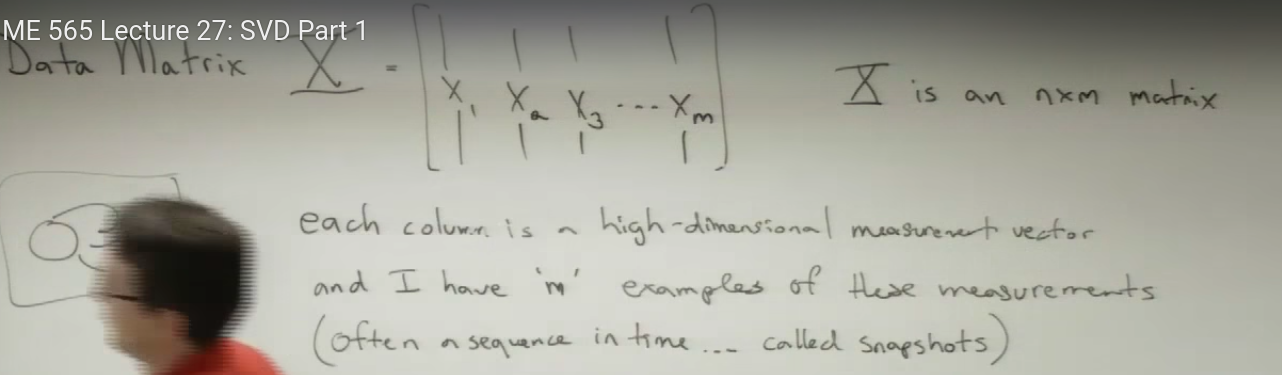 ME 565 Lecture 27: SVD Part 1
Data Matrix X = [ x₁ x₂ x₃ ... xₘ ]
X is an nxm matrix
each column is a high-dimensional measurement vector
and I have 'm' examples of these measurements
(often a sequence in time ... called snapshots)